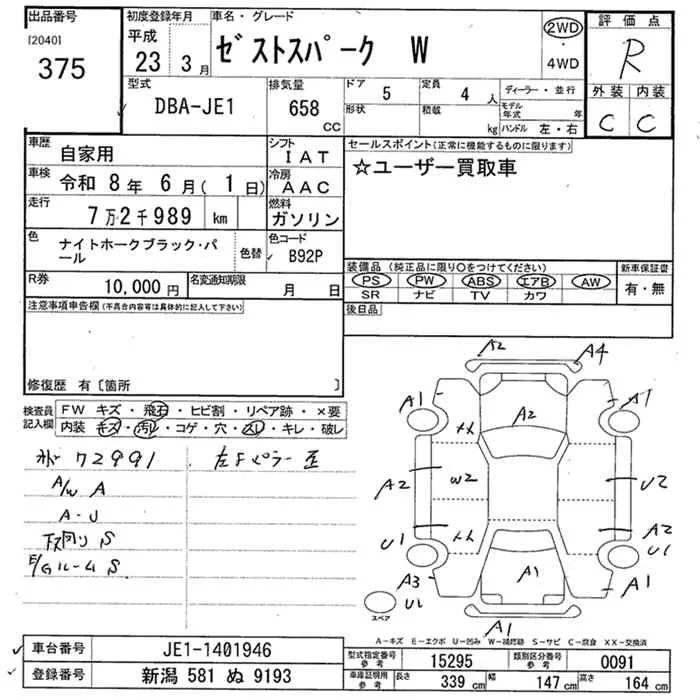 出品番号
[2040]
375
初度登録年月
平成
23 3月
車名・グレード
ゼストスパーク W
2WD
・
4WD
評価点
R
外装 内装
C C
型式
DBA-JE1
排気量
658
CC
ドア
5
定員
4人
形状
積載
kg
ディーラー・並行
モデル年式 年
ハンドル 左・右
車歴
自家用
シフト
IAT
車検
令和 8年 6月(1日)
冷房
AAC
走行
7万2千989 km
燃料
ガソリン
色
ナイトホークブラック・パール
色替
色コード
B92P
R券
10,000円
名変通知期限
月 日
セールスポイント(正常に機能するものに限ります)
☆ユーザー買取車
装備品(純正品に限り○をつけてください)
PS PW ABS エアB AW
SR ナビ TV カワ
新車保証書
有・無
後日品
注意事項申告欄(不具合内容等は具体的に記入して下さい)
修復歴 有〔箇所 〕
検査員記入欄
FW キズ・飛石・ヒビ割・リペア跡・×要
内装 キズ・汚れ・コゲ・穴・スレ・キレ・破レ
72991
A/W A
A-U
下回り S
E/Gルーム S
左Fピラー歪
A2
A4
A1
A1
A2
A2
W2
U2
A2
U1
U1
A3
A1
A1
U1
スペア
A1
A－キズ E－エクボ U－凹み W－補修跡 S－サビ C－腐食 XX－交換済
車台番号
JE1-1401946
登録番号
新潟 581 ぬ 9193
型式指定番号
参考
15295
類別区分番号
参考
0091
車庫証明用
参考
長さ
339 cm
幅
147 cm
高さ
164 cm